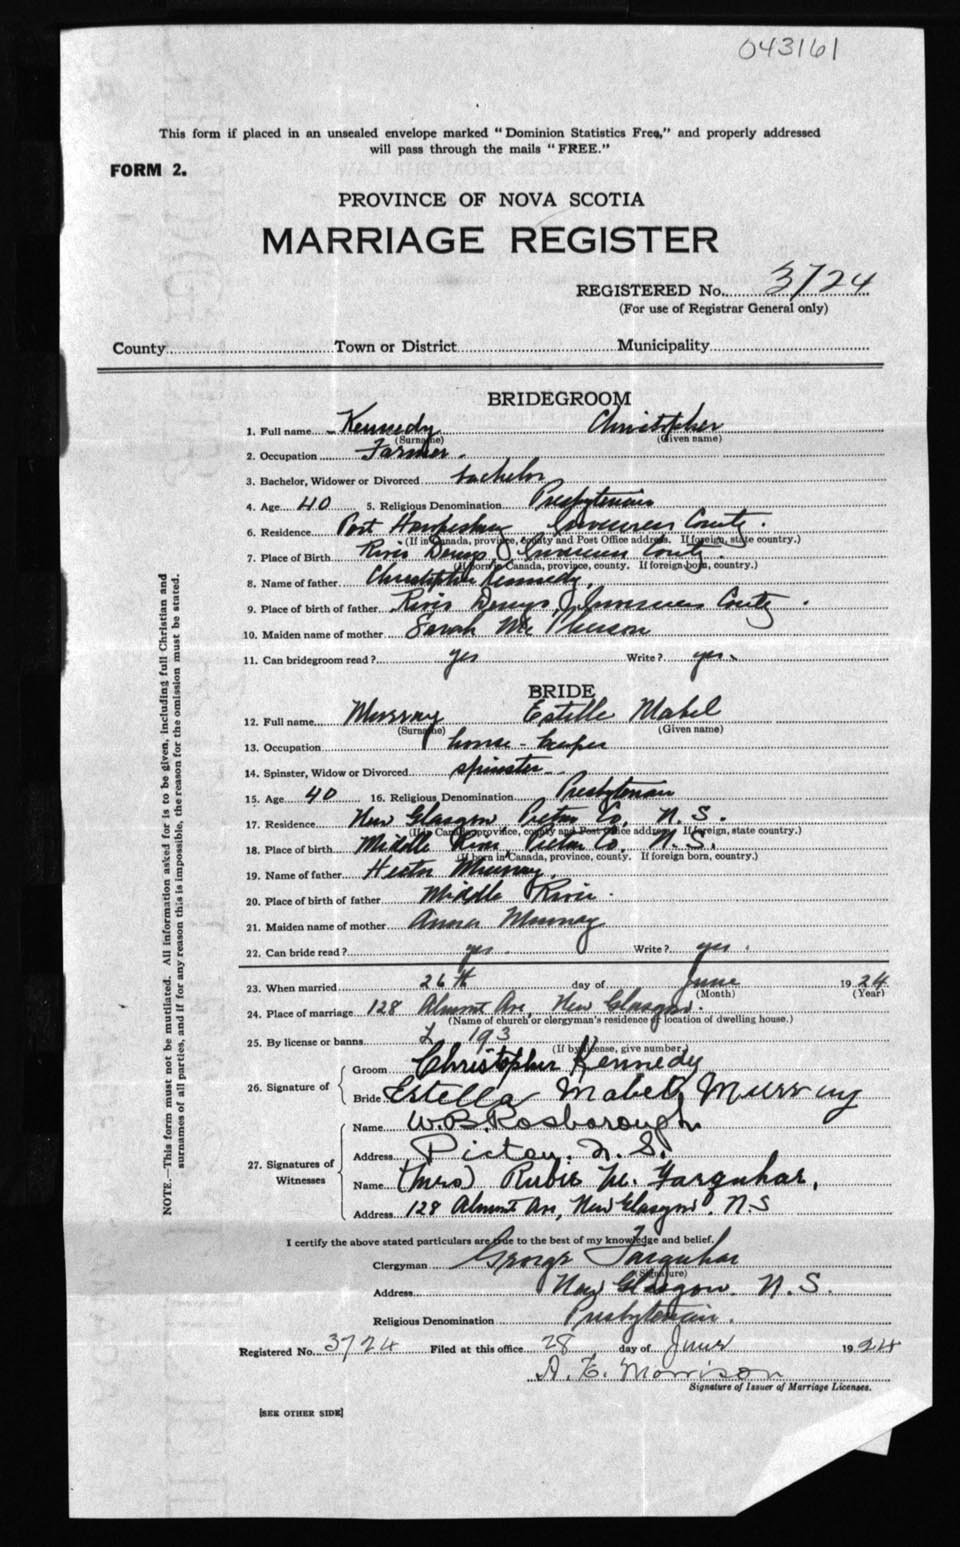 043161
This form if placed in an unsealed envelope marked "Dominion Statistics Free," and properly addressed
will pass through the mails "FREE."
FORM 2.
PROVINCE OF NOVA SCOTIA
MARRIAGE REGISTER
REGISTERED No. 3724
(For use of Registrar General only)
County Town or District Municipality
BRIDEGROOM
1. Full name Kennedy Christopher
(Surname) (Given name)
2. Occupation Farmer.
3. Bachelor, Widower or Divorced bachelor
4. Age 40 5. Religious Denomination Presbyterian
6. Residence Port Hawkesbury Inverness County.
(If in Canada, province, county and Post Office address. If foreign, state country.)
7. Place of Birth River Denys, Inverness County.
(If born in Canada, province, county. If foreign born, country.)
8. Name of father Christopher Kennedy,
9. Place of birth of father River Denys, Inverness County.
10. Maiden name of mother Sarah McPherson
11. Can bridegroom read? yes Write? yes.
BRIDE
12. Full name Murray Estelle Mabel
(Surname) (Given name)
13. Occupation house-keeper
14. Spinster, Widow or Divorced spinster
15. Age 40 16. Religious Denomination Presbyterian
17. Residence New Glasgow Pictou Co. N. S.
(If in Canada, province, county and Post Office address. If foreign, state country.)
18. Place of birth Middle River, Pictou Co. N. S.
(If born in Canada, province, county. If foreign born, country.)
19. Name of father Hector Murray.
20. Place of birth of father Middle River.
21. Maiden name of mother Anna Murray
22. Can bride read? yes. Write? yes.
23. When married 26th day of June 1924
(Month) (Year)
24. Place of marriage 128 Almont Av, New Glasgow.
(Name of church or clergyman's residence or location of dwelling house.)
25. By license or banns L 193
(If by license, give number)
26. Signature of Groom Christopher Kennedy
Bride Estella Mabel Murray
27. Signatures of Witnesses Name W. B. Rosborough
Address Pictou. N. S.
Name (Mrs) Rubie M. Farquhar,
Address 128 Almont Av, New Glasgow. N. S
I certify the above stated particulars are true to the best of my knowledge and belief.
Clergyman George Farquhar
(Signature)
Address New Glasgow. N. S.
Religious Denomination Presbyterian.
Registered No. 3724 Filed at this office 28 day of June 1924
Morrison
Signature of Issuer of Marriage Licenses.
[SEE OTHER SIDE]
NOTE.—This form must not be mutilated. All information asked for is to be given, including full Christian and
surnames of all parties, and if for any reason this is impossible, the reason for the omission must be stated.